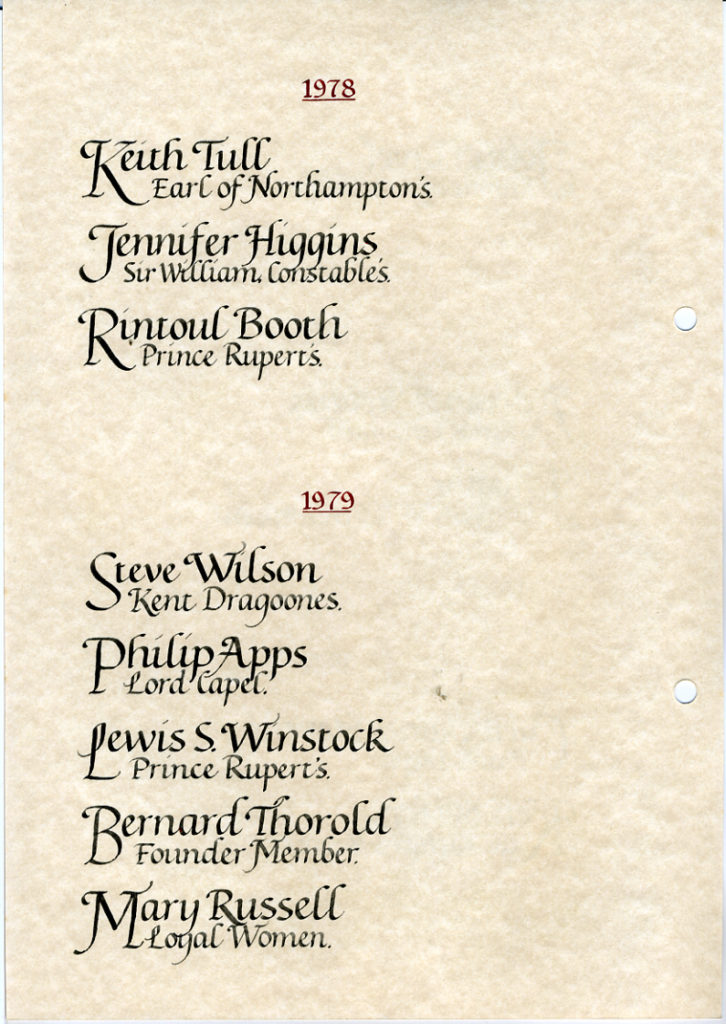 1978
Keith Tull
Earl of Northampton's.
Jennifer Higgins
Sir William Constable's.
Rintoul Booth
Prince Rupert's.
1979
Steve Wilson
Kent Dragoones.
Philip Apps
Lord Capel.
Lewis S. Winstock
Prince Rupert's.
Bernard Thorold
Founder Member.
Mary Russell
Loyal Women.